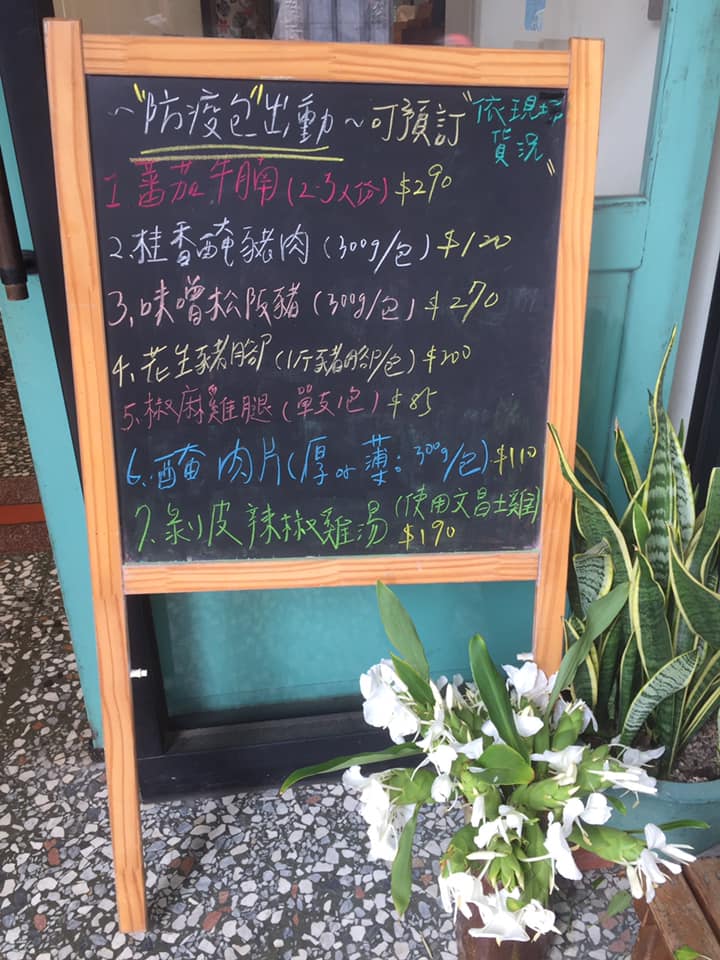 ~"防疫包"出動~可預訂
"依現場貨況"
1.蕃茄牛腩(2-3人份)$290
2.桂香醃豬肉(300g/包)$120
3.味噌松阪豬(300g/包)$270
4.花生豬腳(1斤豬腳/包)$200
5.椒麻雞腿(單支/包)$85
6.醃肉片(厚or薄:300g/包)$110
7.剝皮辣椒雞湯(使用文昌土雞)$190